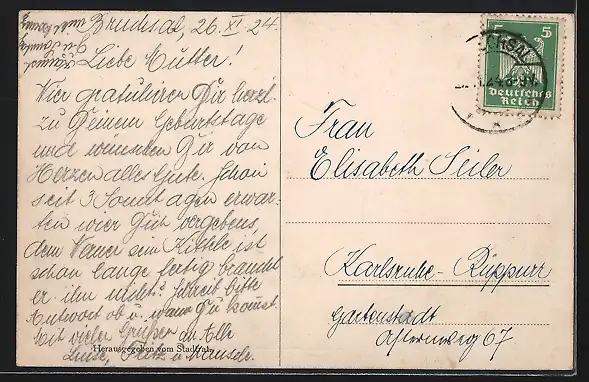 Bruchsal, 26. XI. 24.
Liebe Mutter!
Wier gratulieren Dir herzl.
zu Deinem Geburtstage
und wünschen Dir von
Herzen alles Gute. Schon
seit 3 Sonntagen erwar-
ten wier Dich vergebens,
dem Vater sein Kittele ist
schon lange fertig braucht
er ihn nicht? Schreib bitte
Antwort ob u. wann Du kommst.
Mit vielen Grüßen an Alle
Luise, Fritz u.
Herausgegeben vom Stadtrat
5 5
Deutsches
Reich
Frau
Elisabeth Seiler
Karlsruhe-Rüppurr
Gartenstadt
Asternweg 67